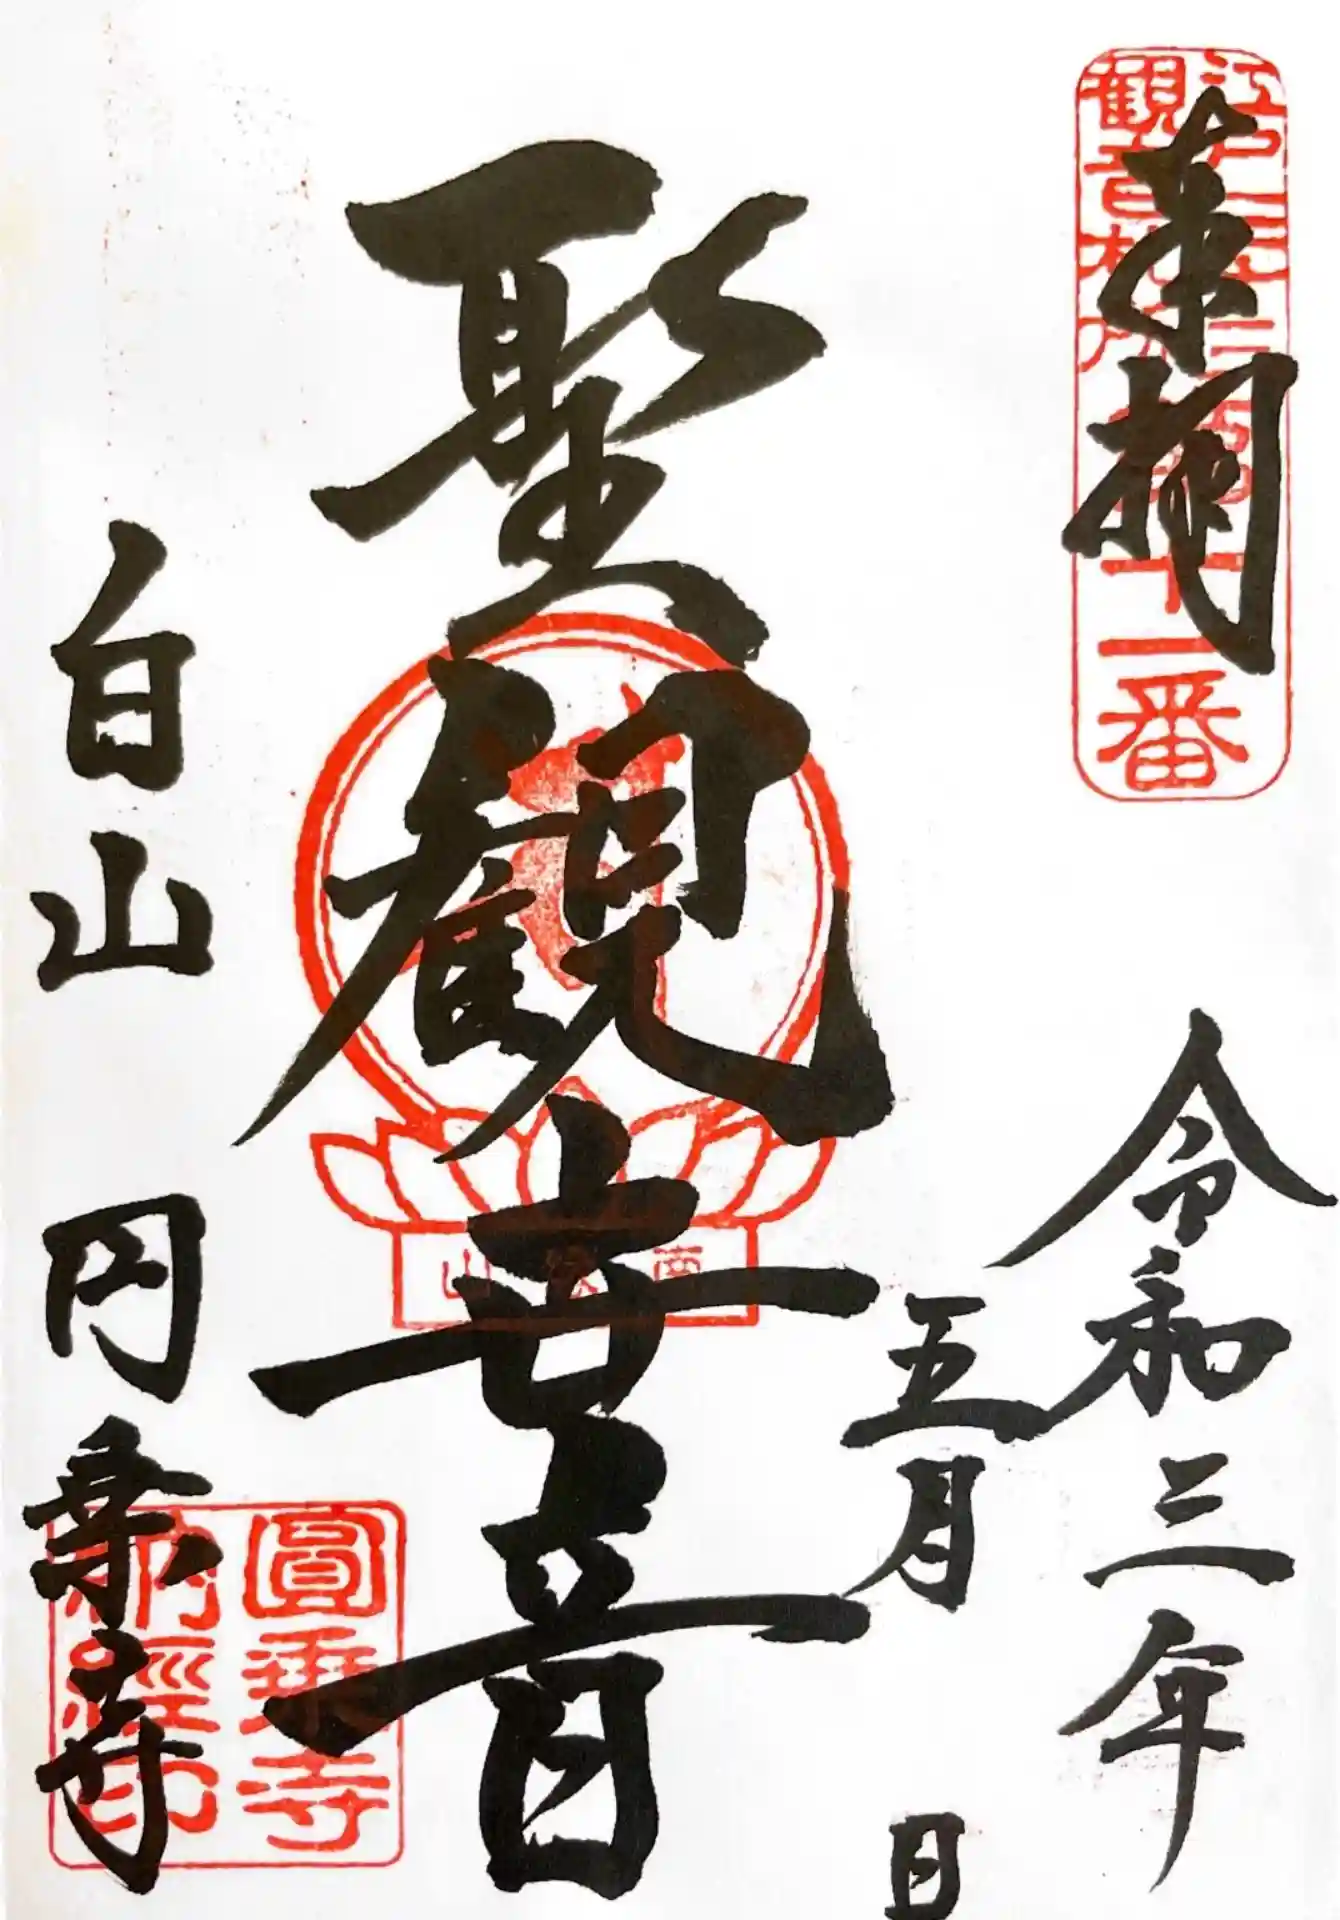 奉拝
江戸三十三
観音札所
第十一番
令和三年
五月 日
聖観世音
南縁山
白山 円乗寺
圓乗寺
納經印